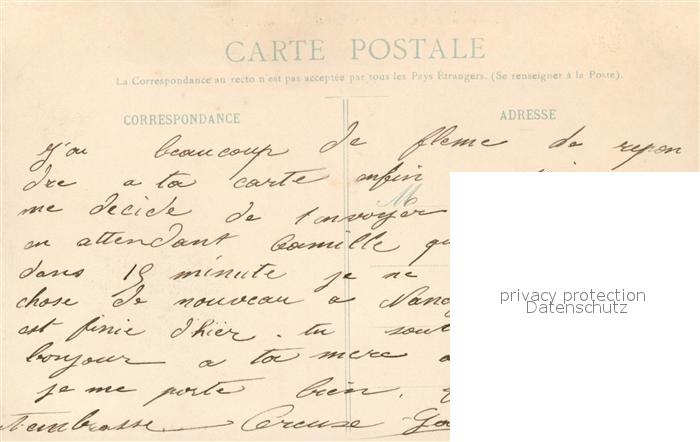 CARTE POSTALE
La Correspondance au recto n'est pas acceptée par tous les Pays Etrangers. (Se renseigner à la Poste).
CORRESPONDANCE
ADRESSE
j'ai beaucoup de fleme de repon
dre a ta carte enfin
M
me decide de t'envoyer
en attendant Camille qu
dans 15 minute je ne
chose de nouveau a Nanc
est finie d'hier. tu sou
bonjour a ta mere a
je me porte bien.
t'embrasse
privacy protection
Datenschutz